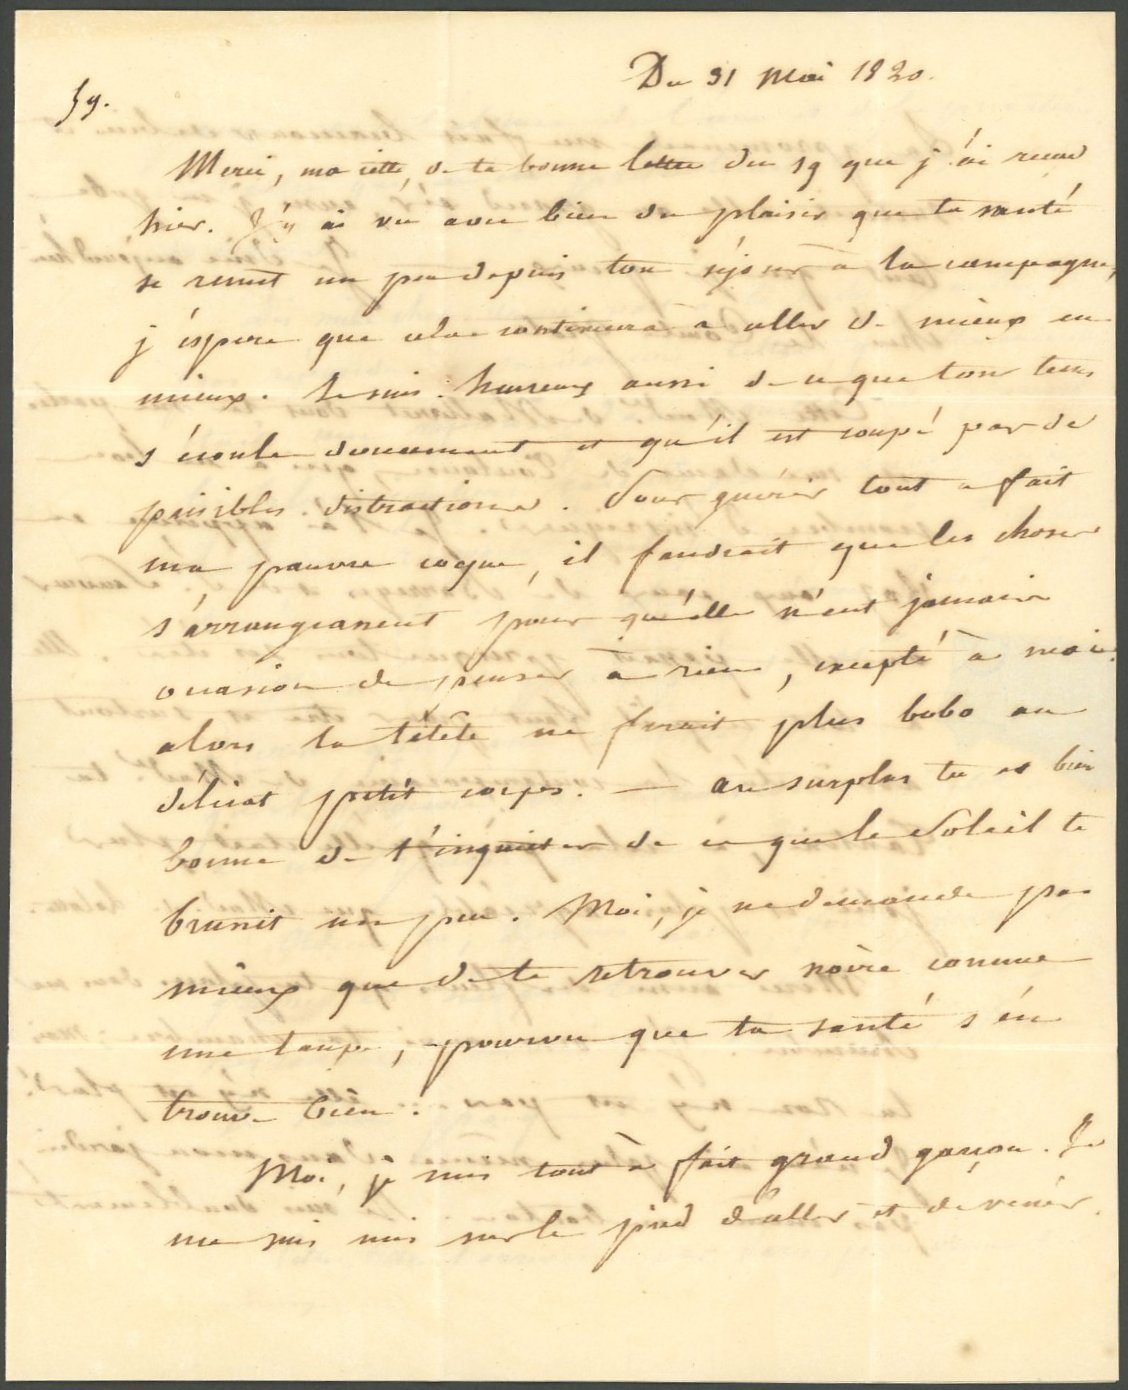 Du 31 Mai 1820.
59.
Merci, ma de ta bonne lettre du 29 que j'ai recue
hier. J'y ai vu avec bien du plaisir que ta santé
se remet un peu depuis ton séjour à la campagne,
j'éspere que cela continuera à aller de mieux en
mieux. Je suis heureux aussi de ce que ton tems
s'écoule doucement et qu'il est coupé par de
paisibles distractions. Pour guérir tout a fait
ma pauvre coque, il faudrait que les choses
s'arrangeassent pour qu'elle n'eut jamais
occasion de penser à rien, excepté à moi.
alors la tétête ne ferait plus bobo au
délicat petit corps. — au surplus tu es bien
bonne de t'inquieter de ce que le Soleil te
brunit un peu. Moi, je ne demande pas
mieux que de te retrouver noire comme
une taupe, pourvu que ta santé s'en
trouve bien.
Moi, je suis tout à fait grand garçon. Je
me suis mis sur le pied d'aller et de venir.